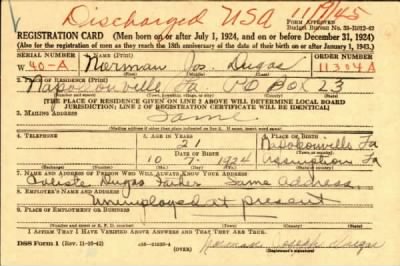 Discharged USA 11/9/45
FORM APPROVED
Budget Bureau No. 33-R012-43
REGISTRATION CARD (Men born on or after July 1, 1924, and on or before December 31, 1924)
(Also for the registration of men as they reach the 18th anniversary of the date of their birth on or after January 1, 1943.)
SERIAL NUMBER 1. NAME (Print) ORDER NUMBER
W 40-A Norman Jos. Dugas 11,504A
(First) (Middle) (Last)
2. PLACE OF RESIDENCE (Print)
Napoleonville La PO Box 23
[THE PLACE OF RESIDENCE GIVEN ON LINE 2 ABOVE WILL DETERMINE LOCAL BOARD
JURISDICTION; LINE 2 OF REGISTRATION CERTIFICATE WILL BE IDENTICAL]
3. MAILING ADDRESS
Same
4. TELEPHONE 5. AGE IN YEARS 6. PLACE OF BIRTH
21 Napoleonville La
DATE OF BIRTH
10 7 1924 Assumption La
(Exchange) (Number) (Mo.) (Day) (Yr.) (State or country)
7. NAME AND ADDRESS OF PERSON WHO WILL ALWAYS KNOW YOUR ADDRESS
Dugas Father Same address
8. EMPLOYER'S NAME AND ADDRESS
Unemployed at present
9. PLACE OF EMPLOYMENT OR BUSINESS
I AFFIRM THAT I HAVE VERIFIED ABOVE ANSWERS AND THAT THEY ARE TRUE.
DSS Form 1 (Rev. 11-16-42) (OVER) Norman Joseph Dugas
(Registrant's signature)